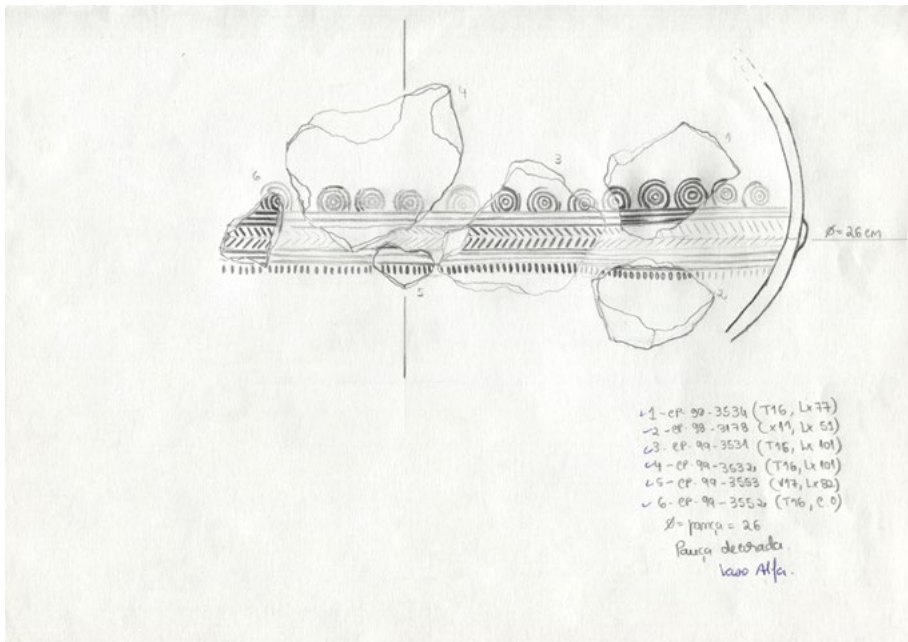 4
1
3
6
Ø= 26 cm
5
2
1-CP-98-3534 (T16, Lx 77)
2-CP-98-3178 (X11, Lx 51)
3-CP-99-3531 (T16, Lx 101)
4-CP-99-3532 (T16, Lx 101)
5-CP-99-3553 (V17, Lx 82)
6-CP-99-3552 (T16, C.0)
Ø= pança = 26
Pança decorada.
Vaso Alfa.